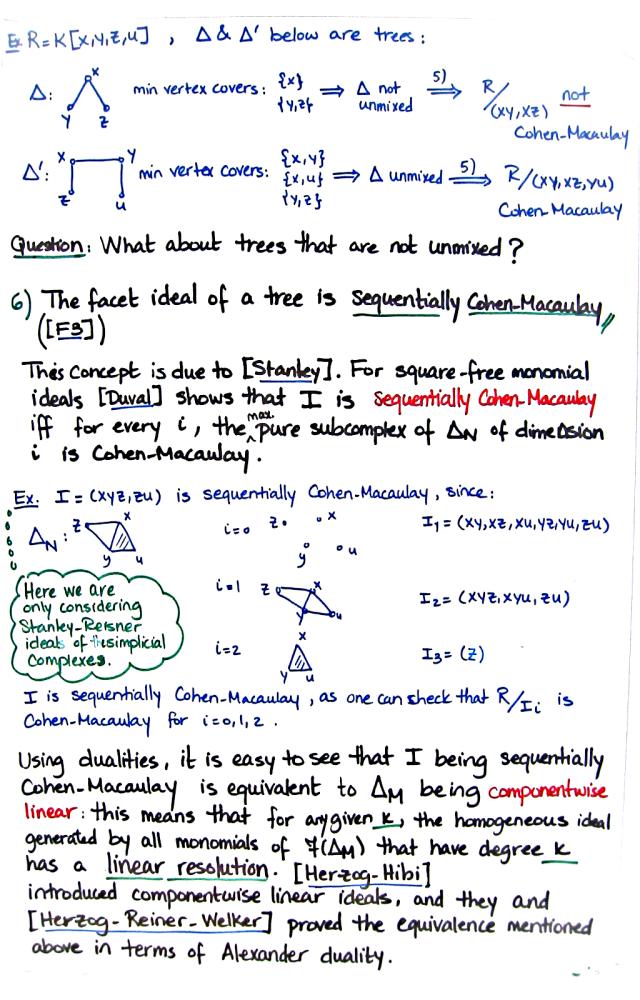 Ex R=K[x,y,z,u] , Δ & Δ' below are trees:
x
Δ: min vertex covers: {x} {y,z} ⟹ Δ not unmixed 5)⟹ R/(xy,xz) not Cohen-Macaulay
y z
x y
Δ': min vertex covers: {x,y} {x,u} {y,z} ⟹ Δ unmixed 5)⟹ R/(xy,xz,yu) Cohen-Macaulay
z u
Question: What about trees that are not unmixed?
6) The facet ideal of a tree is sequentially Cohen-Macaulay,
([F3])
This concept is due to [Stanley]. For square-free monomial
ideals [Duval] shows that I is sequentially Cohen-Macaulay
iff for every i, the max. pure subcomplex of ΔN of dimension
i is Cohen-Macaulay.
Ex. I = (xyz,zu) is sequentially Cohen-Macaulay, since:
ΔN: z x y u i=0 z x y u I1 = (xy,xz,xu,yz,yu,zu)
Here we are
only considering
Stanley-Reisner
ideals of the simplicial
complexes.
i=1 z x y u I2 = (xyz,xyu,zu)
i=2 x y u I3 = (z)
I is sequentially Cohen-Macaulay, as one can sheck that R/Ii is
Cohen-Macaulay for i=0,1,2.
Using dualities, it is easy to see that I being sequentially
Cohen-Macaulay is equivalent to ΔM being componentwise
linear: this means that for any given k, the homogeneous ideal
generated by all monomials of F(ΔM) that have degree k
has a linear resolution. [Herzog-Hibi]
introduced componentwise linear ideals, and they and
[Herzog-Reiner-Welker] proved the equivalence mentioned
above in terms of Alexander duality.